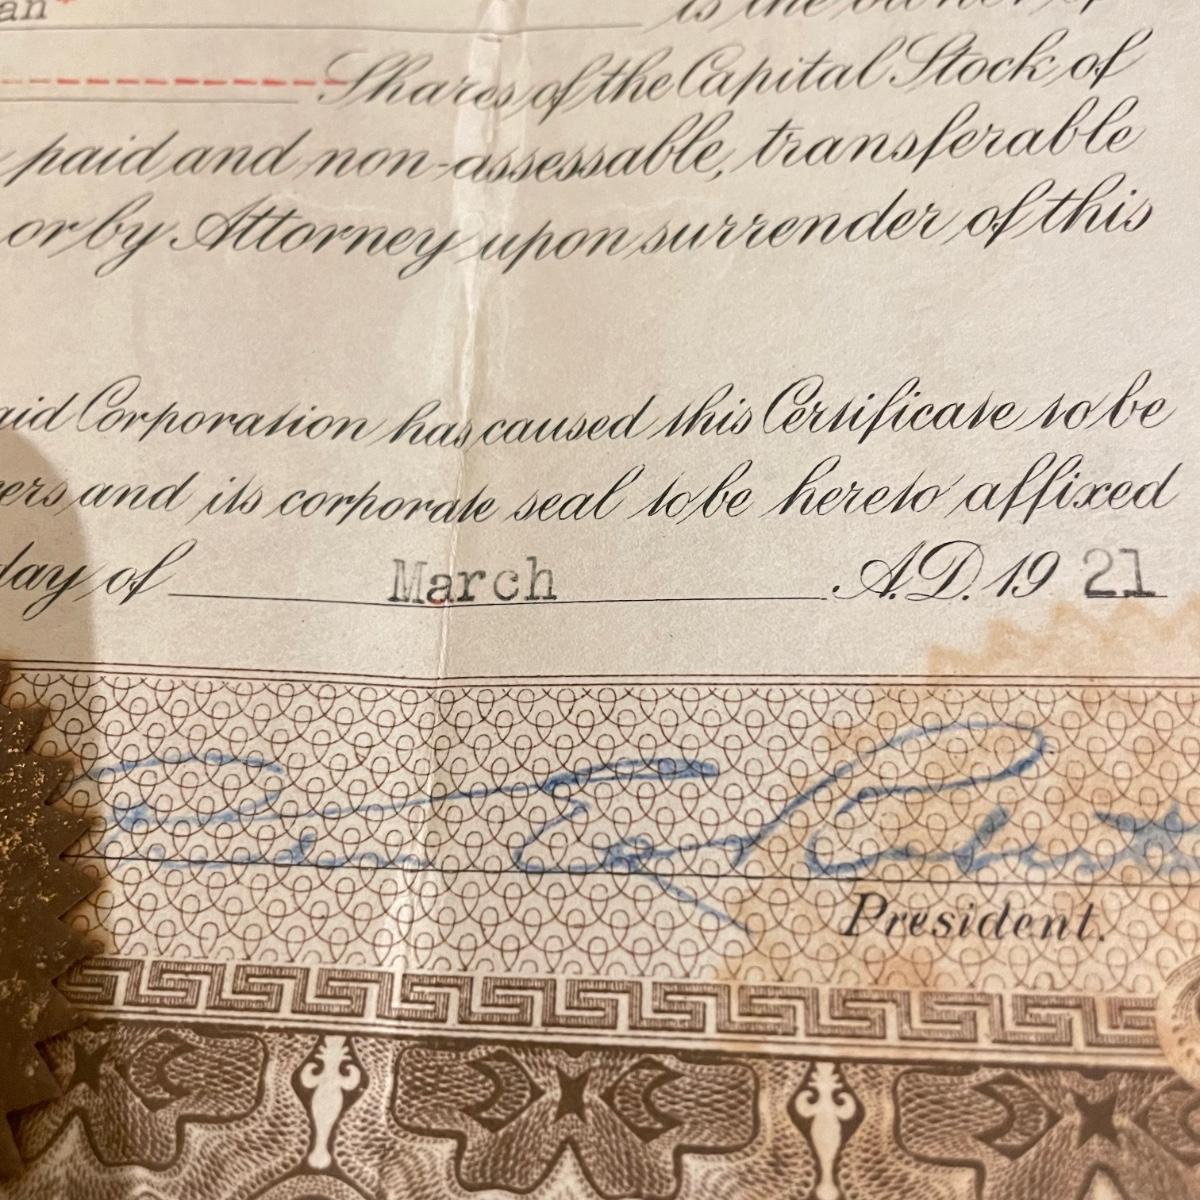 an is the owner of
Shares of the Capital Stock of
paid and non-assessable, transferable
or by Attorney upon surrender of this
aid Corporation has caused this Certificate to be
ers and its corporate seal to be hereto affixed
day of March A.D. 19 21
President.